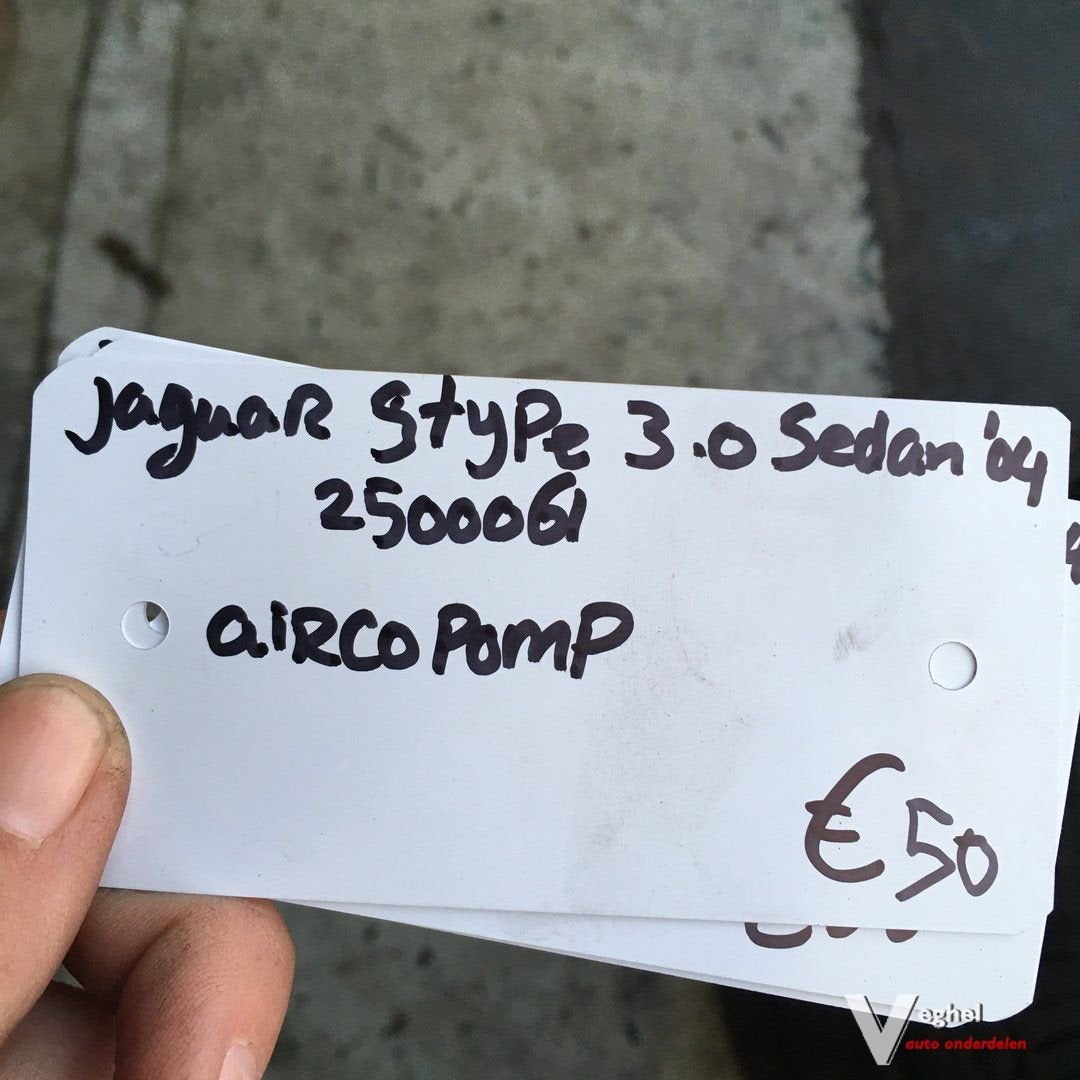 Jaguar Stype 3.0 Sedan '04
2500061
airco pomp
€50
Veghel
auto onderdelen